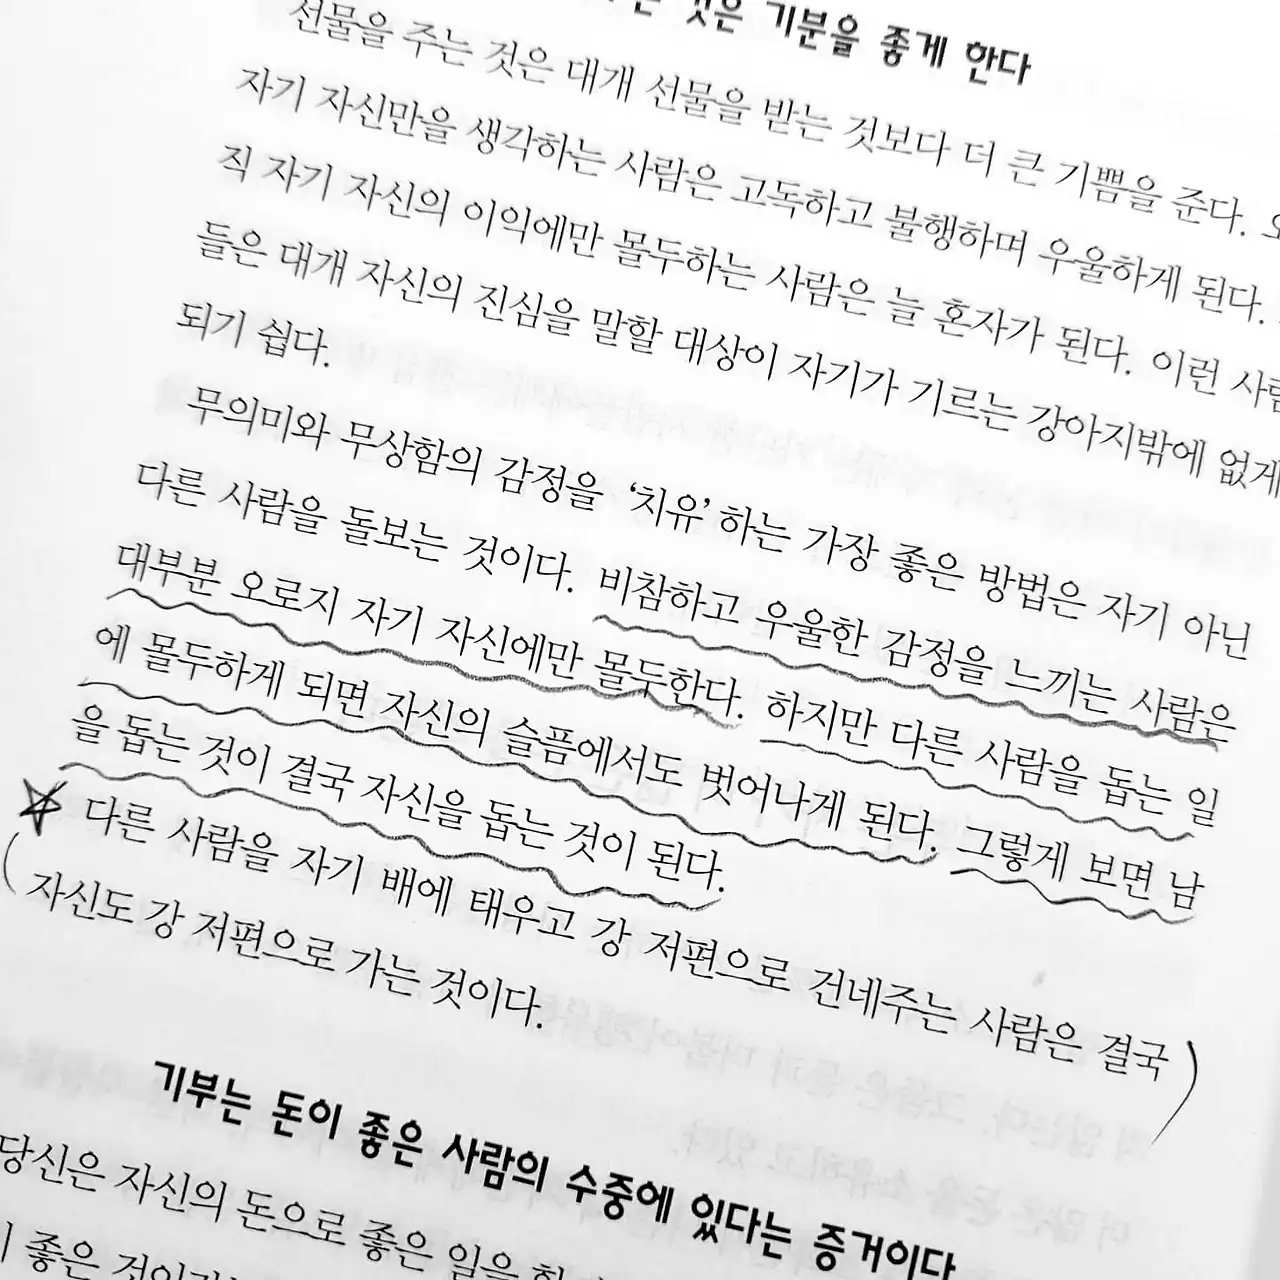 것은 기분을 좋게 한다
선물을 주는 것은 대개 선물을 받는 것보다 더 큰 기쁨을 준다.
자기 자신만을 생각하는 사람은 고독하고 불행하며 우울하게 된다.
직 자기 자신의 이익에만 몰두하는 사람은 늘 혼자가 된다. 이런 사람
들은 대개 자신의 진심을 말할 대상이 자기가 기르는 강아지밖에 없게
되기 쉽다.
무의미와 무상함의 감정을 ‘치유’하는 가장 좋은 방법은 자기 아닌
다른 사람을 돌보는 것이다. 비참하고 우울한 감정을 느끼는 사람은
대부분 오로지 자기 자신에만 몰두한다. 하지만 다른 사람을 돕는 일
에 몰두하게 되면 자신의 슬픔에서도 벗어나게 된다. 그렇게 보면 남
을 돕는 것이 결국 자신을 돕는 것이 된다.
다른 사람을 자기 배에 태우고 강 저편으로 건네주는 사람은 결국
자신도 강 저편으로 가는 것이다.
기부는 돈이 좋은 사람의 수중에 있다는 증거이다
당신은 자신의 돈으로 좋은 일을
좋은